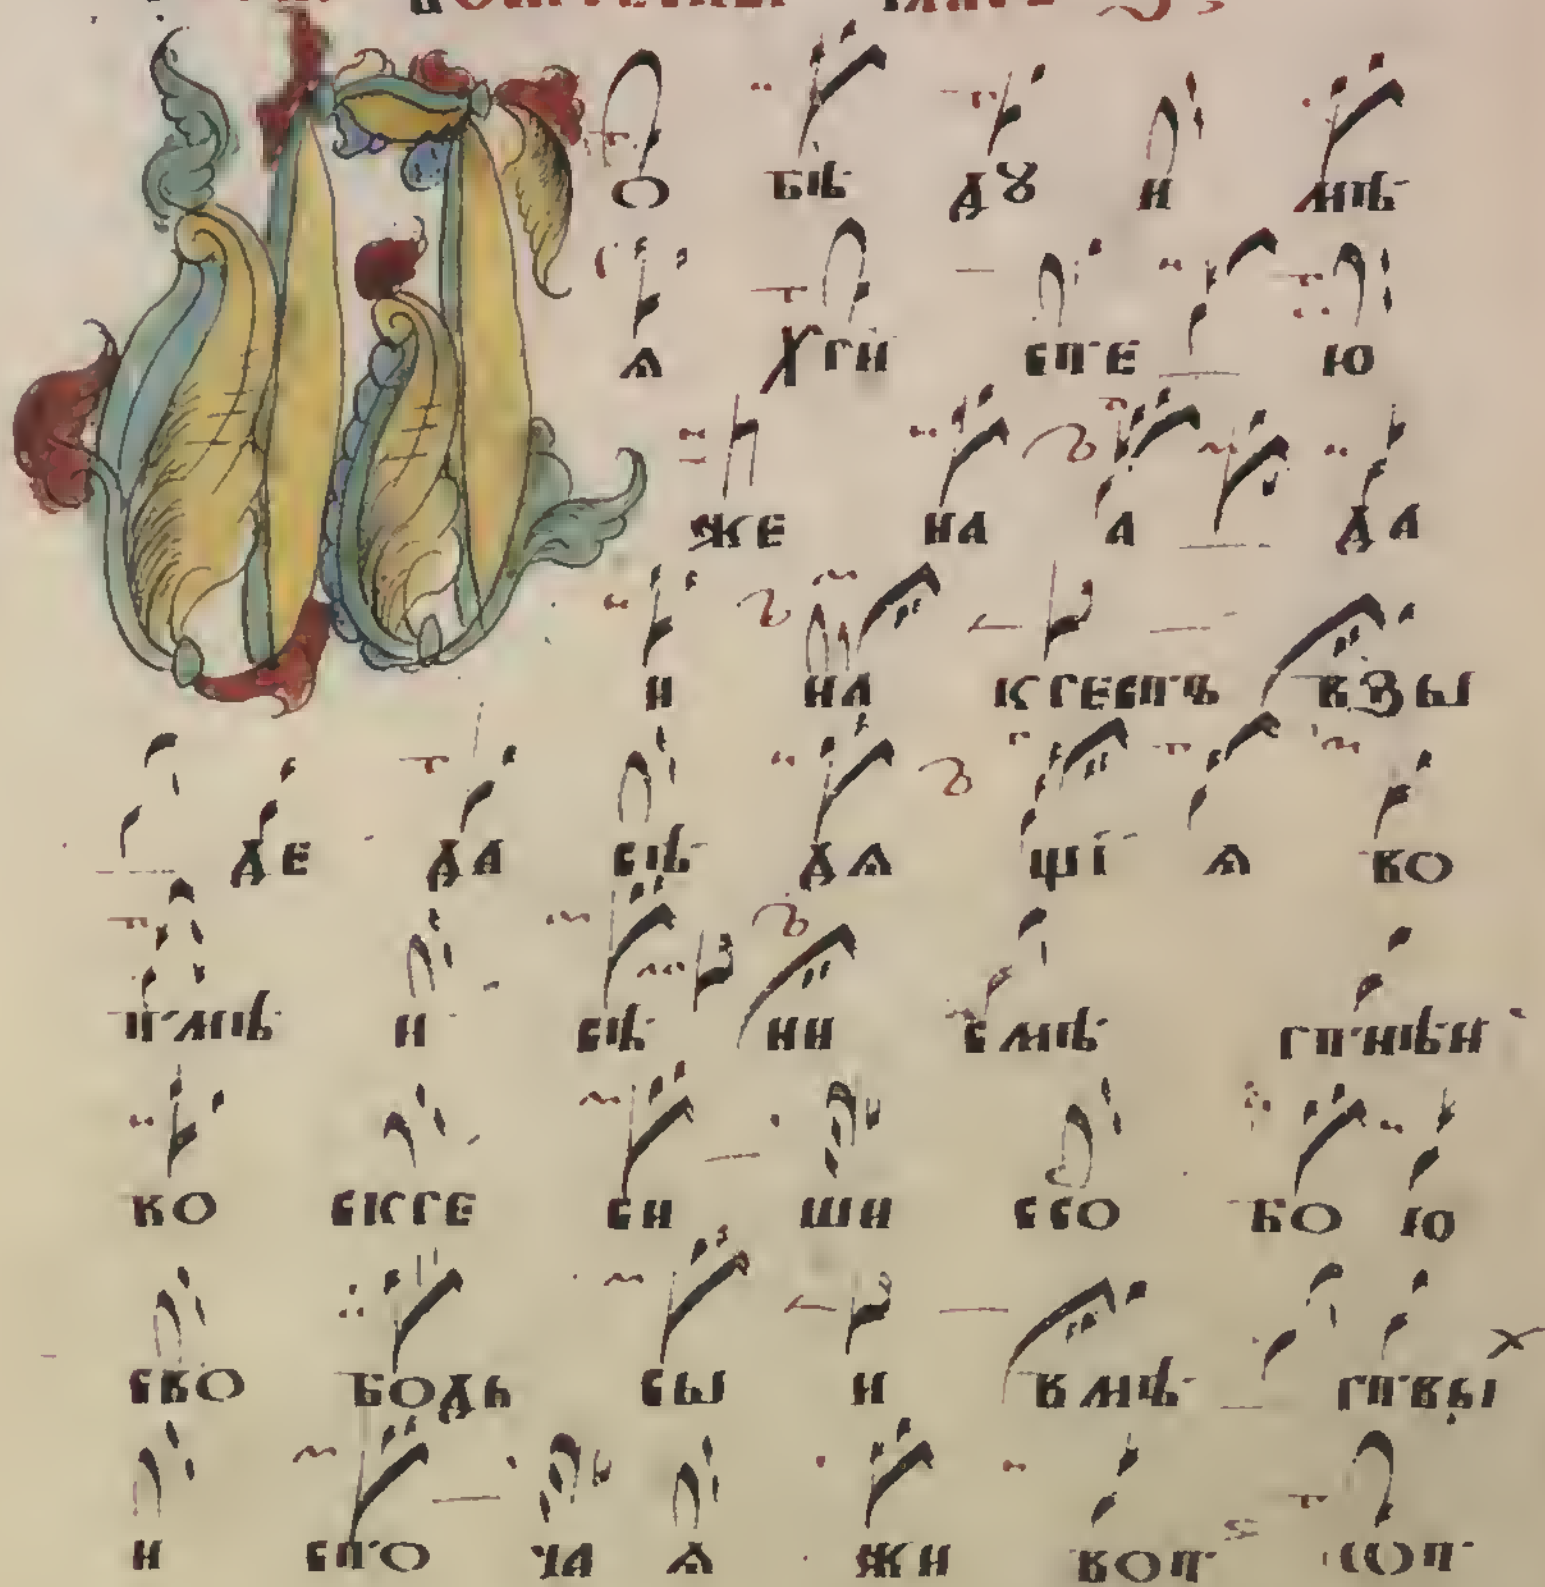 П о бѣ дꙋ и мѣ
ѧ хри сте ю
же на а да
и на крестъ взы
де да сѣ дѧ щї ѧ во
тмѣ и сѣ ни смѣ ртнѣи
ко скре си ши ссо бо ю
сво бодь сы и вмѣ ртвы х
и сто ча ѧ жи вот ѿ